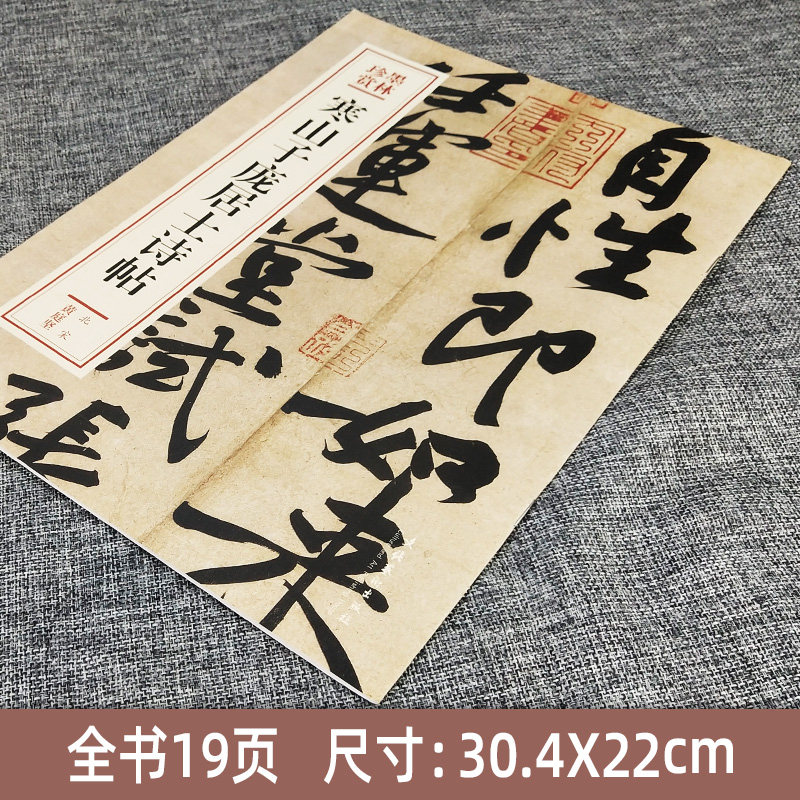 自性即如来
任運堂試
張
墨林
珍赏
寒山子庞居士诗帖
北宋
黄庭坚
全书19页 尺寸:30.4X22cm